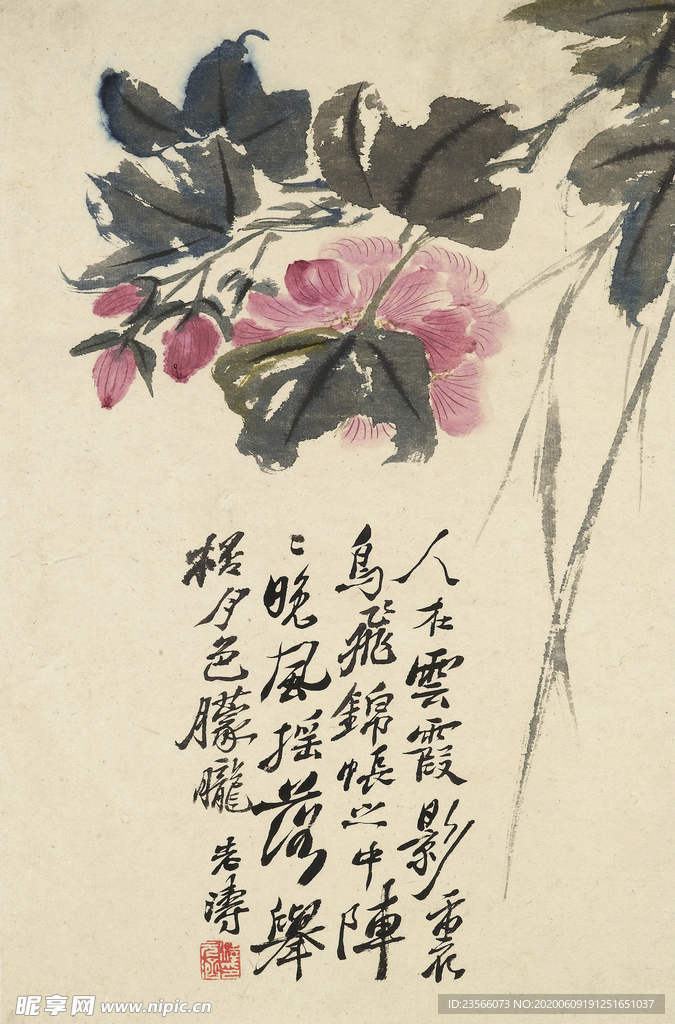 人在雲霞影裏
鳥飛錦帳之中陣
〻晚風搖落舉
夕色朦朧
老濤
昵享网 www.nipic.cn
ID:23566073 NO:20200609191251651037